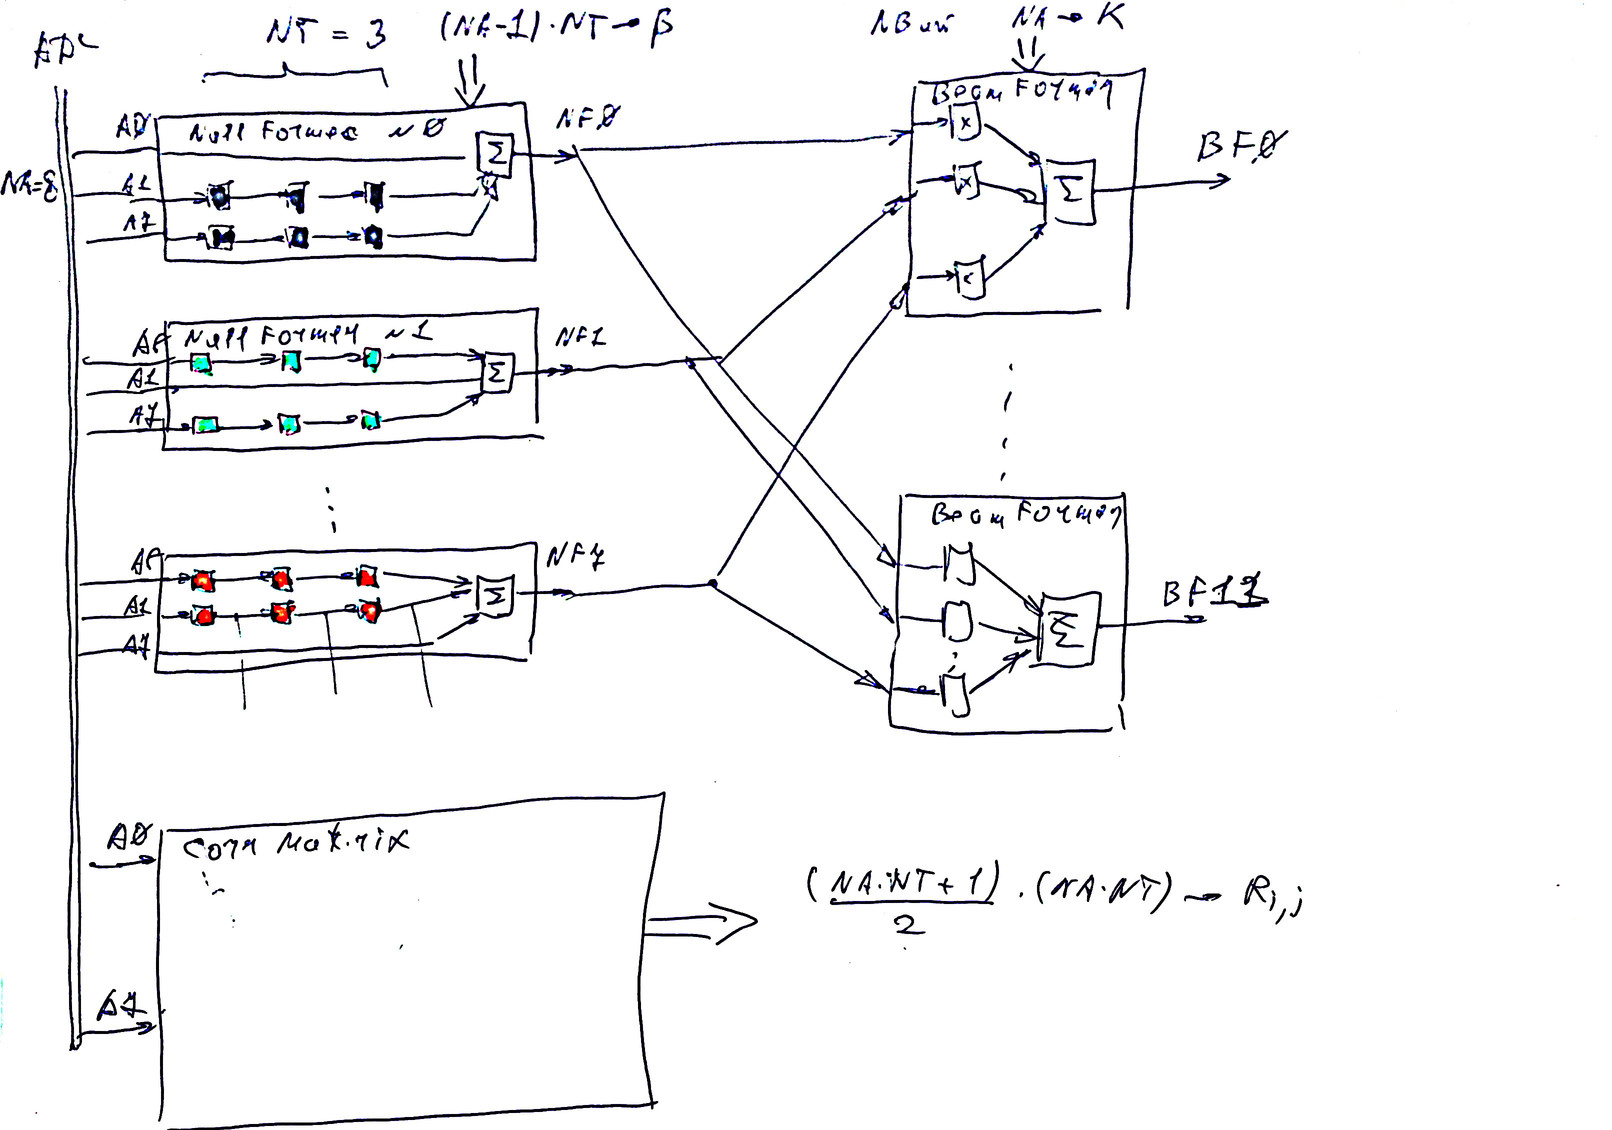 ADC
NT = 3
(NA-1)·NT → β
NA → K
NA=8
A0
Null Former N0
A1
A7
Σ
NF0
Beam Former
x
x
x
Σ
BF0
Null Former N1
A1
A7
Σ
NF1
A1
A7
Σ
NF7
Beam Former
Σ
BF11
A0
Corr Matrix
A7
(NA·NT+1)/2 · (NA·NT) → Ri,j